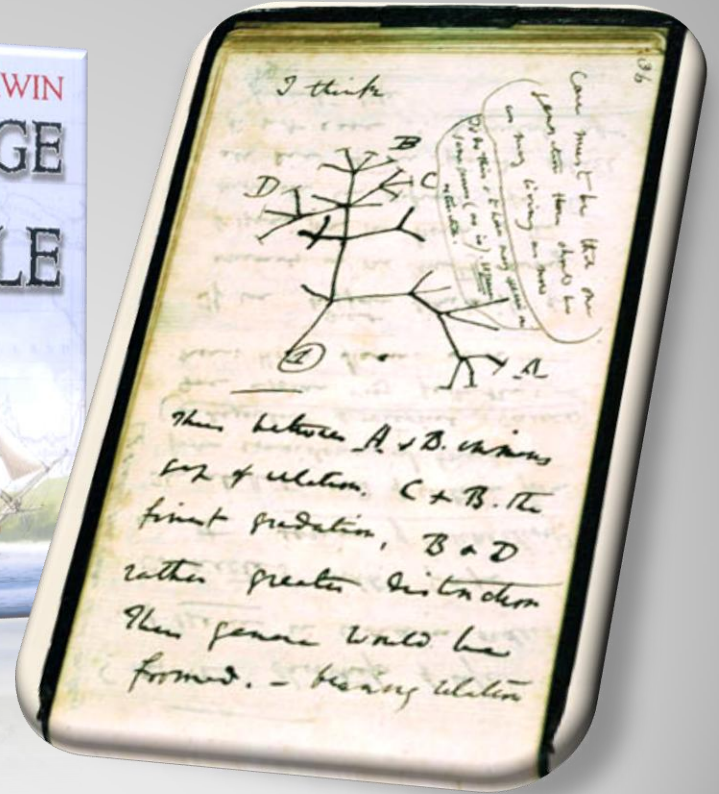 WIN
GE
LE
36
I think
B
D
C
A
1
Case must be that one
generation then should be
as many living as now
To do this & to have many species in
same genus (as is) requires
extinction.
Thus between A & B. immens
gap of relation. C & B. The
finest gradation, B & D
rather greater distinction
Thus genera would be
formed. — bearing relation